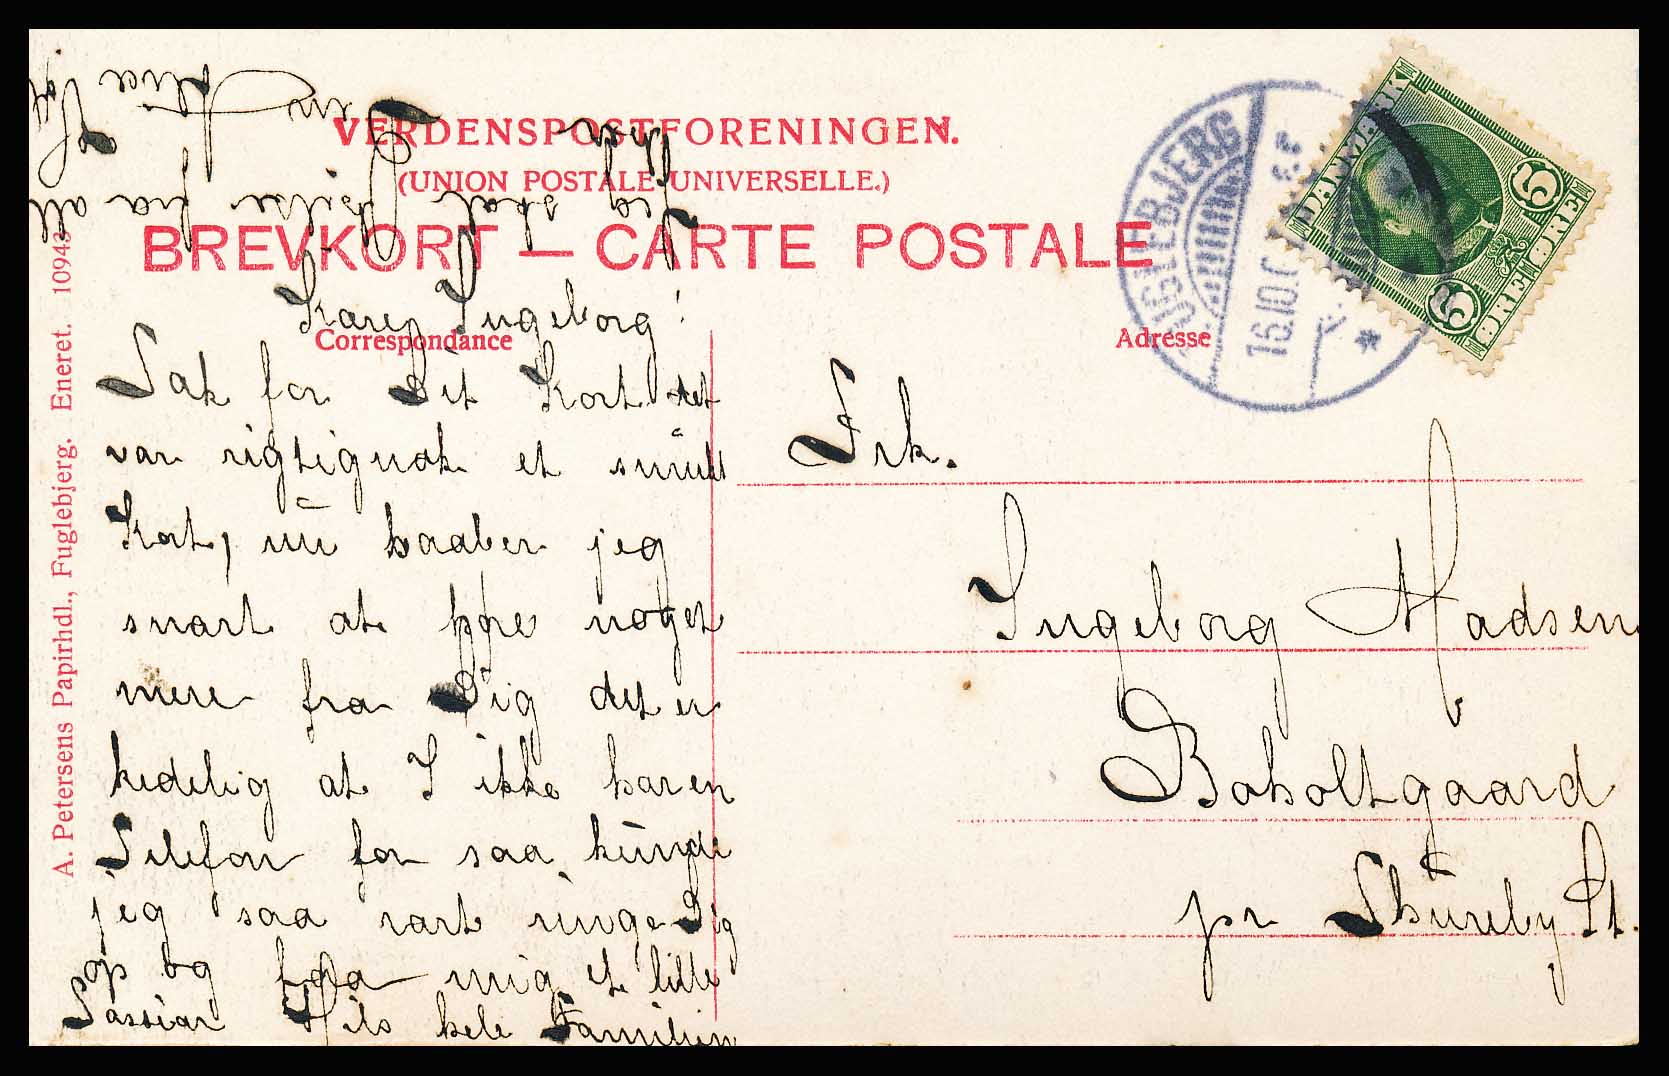 VERDENSPOSTFORENINGEN.
(UNION POSTALE UNIVERSELLE.)
BREVKORT — CARTE POSTALE
Correspondance
Adresse
A. Petersens Papirhdl., Fuglebjerg. Eneret. 10943
FUGLEBJERG
DANMARK
5 ØRE 5
Kære Ingeborg!
Tak for Dit Kort det
var rigtignok et smukt
Kort, nu haaber jeg
snart at høre noget
mere fra Dig det er
kedelig at I ikke haver
Telefon for saa kunde
jeg saa rart ringe Dig
op og faa mig et lille
Passiar Hils hele Familien
Jeg skal hilse fra all
her
Din
Frk.
Ingeborg Madsen
Boholtgaard
pr Skureby St.